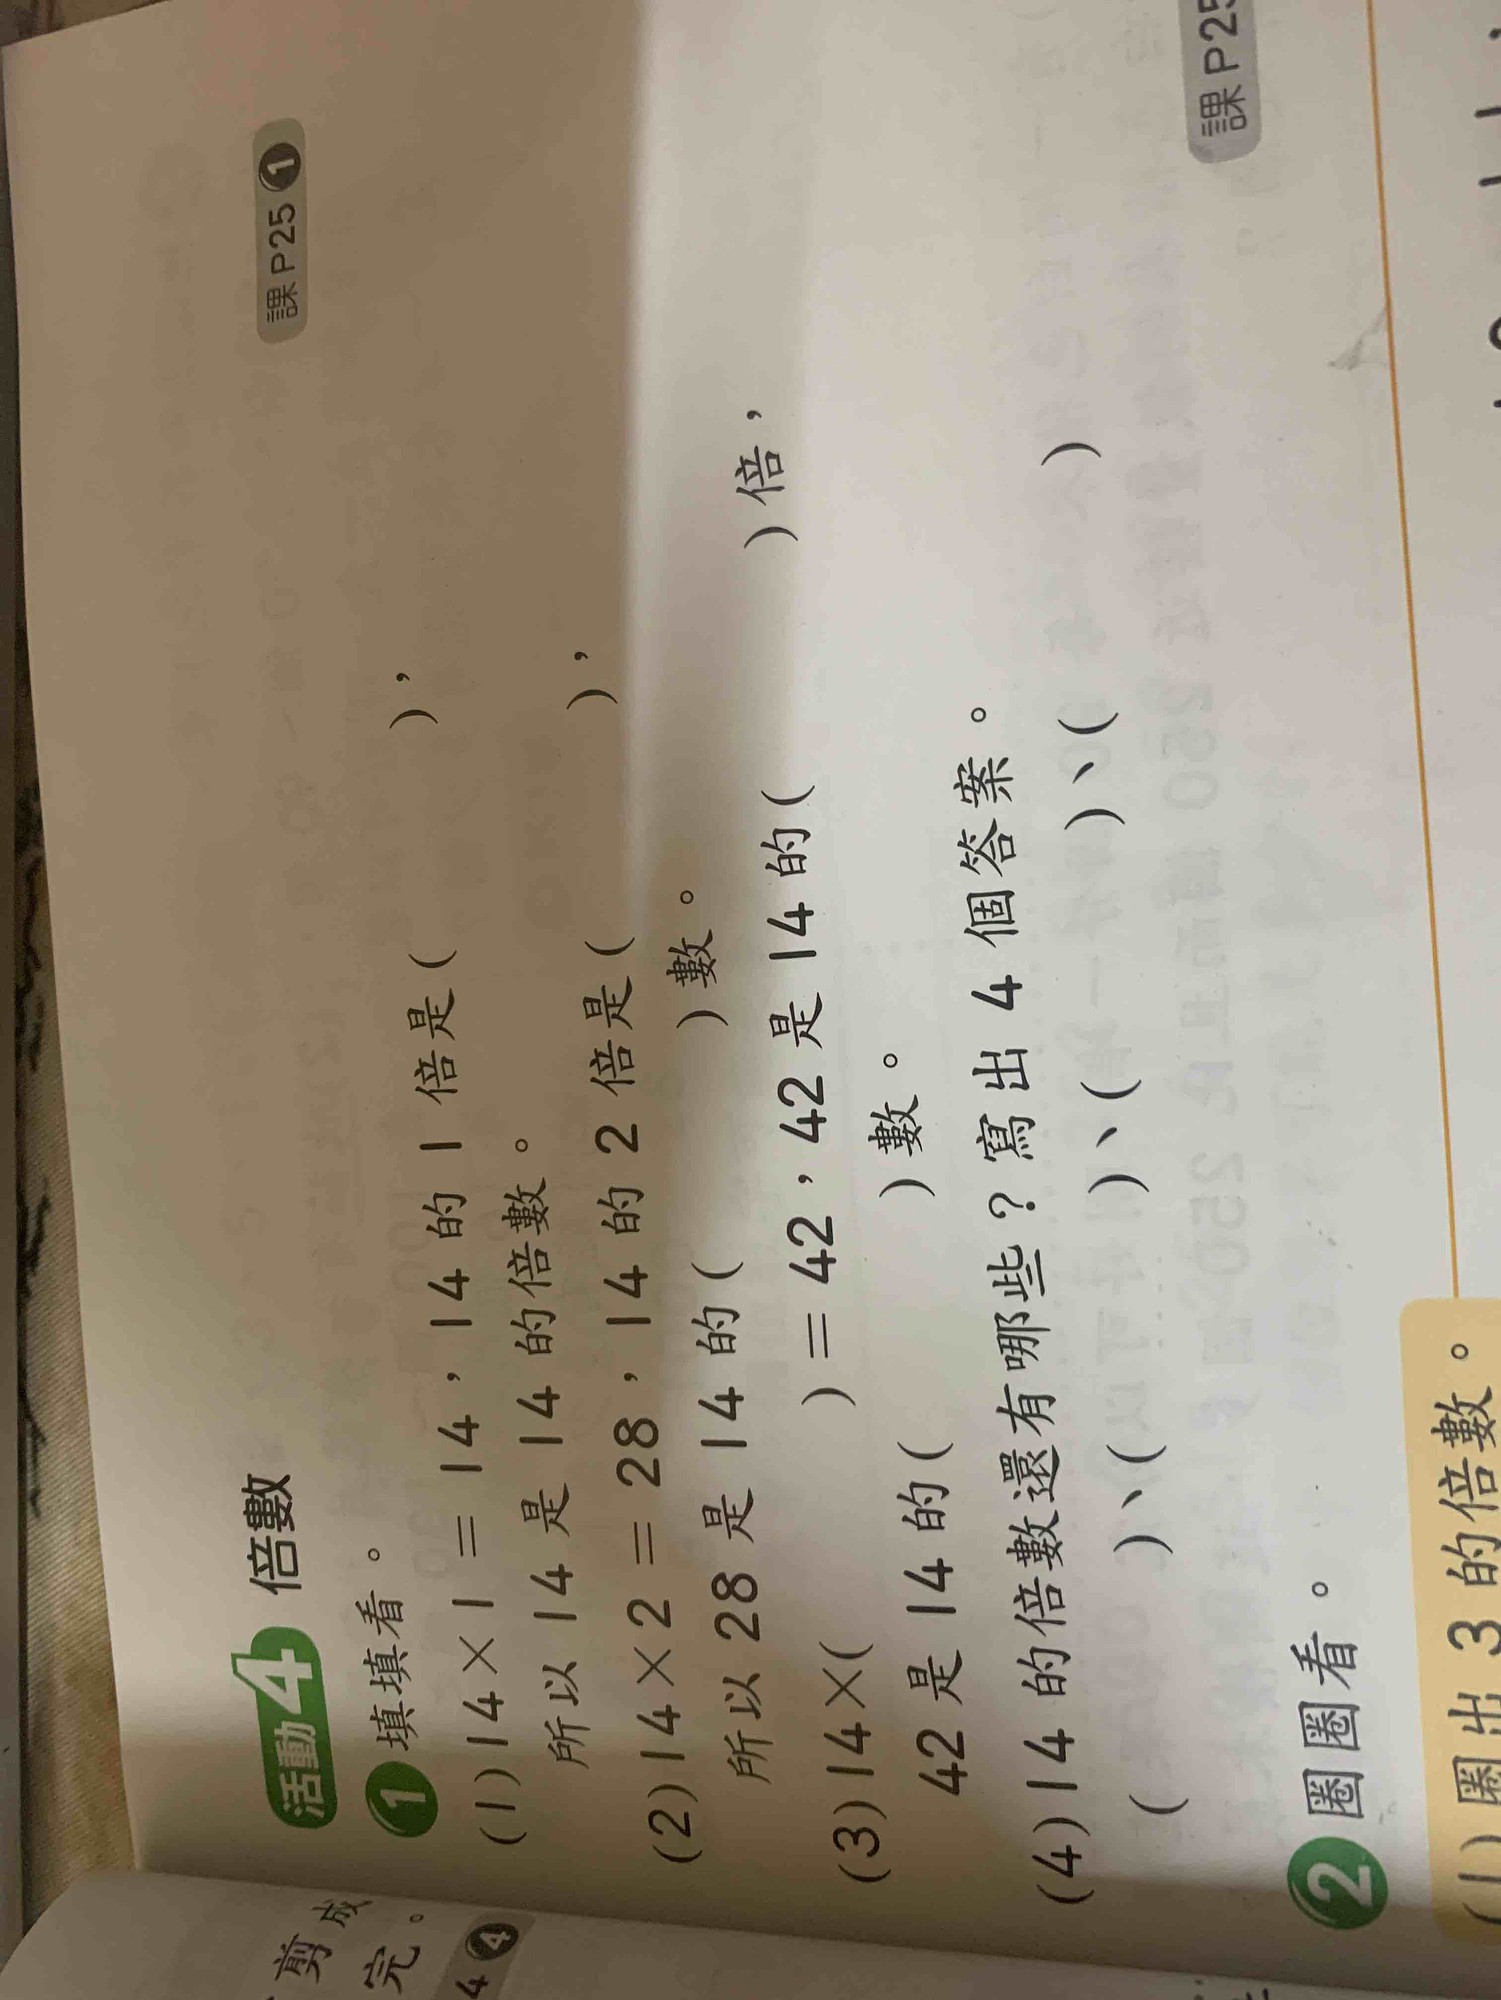 剪成
完。
4 4
活動4 倍數
課 P25 1
1 填填看。
(1) 14×1=14，14的1倍是(　　)，
所以14是14的倍數。
(2) 14×2=28，14的2倍是(　　)，
所以28是14的(　　)數。
(3) 14×(　　)=42，42是14的(　　)倍，
42是14的(　　)數。
(4) 14的倍數還有哪些？寫出4個答案。
(　　)、(　　)、(　　)、(　　)
課 P25
2 圈圈看。
(1) 圈出3的倍數。